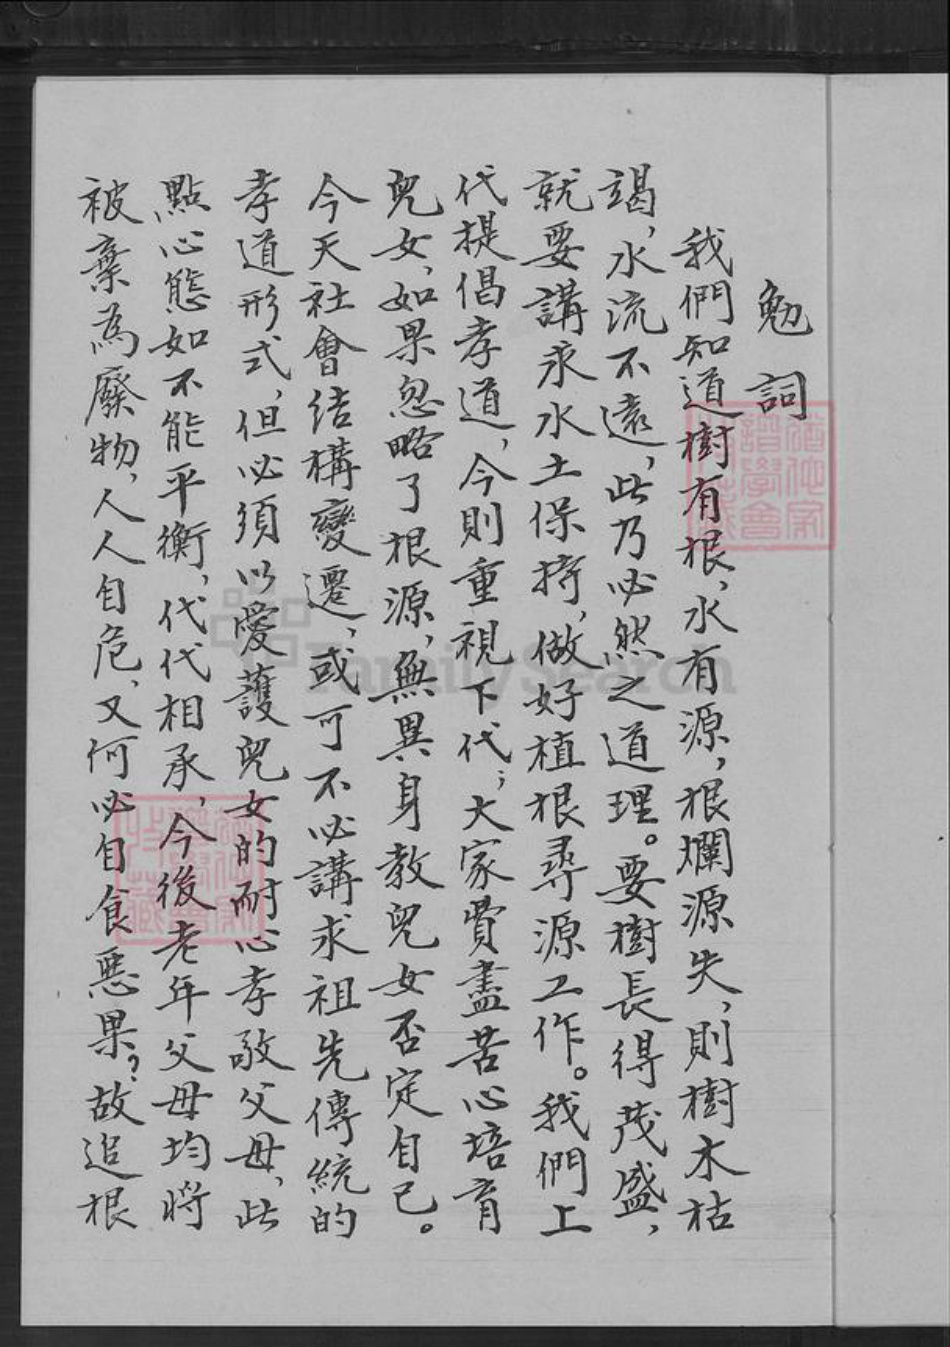 勉詞
我們知道樹有根，水有源，根爛源失，則樹木枯
竭，水流不遠，此乃必然之道理。要樹長得茂盛，
就要講求水土保持，做好植根尋源工作。我們上
代提倡孝道，今則重視下代；大家費盡苦心培育
兒女，如果忽略了根源，無異身教兒女否定自己。
今天社會結構變遷，或可不必講求祖先傳統的
孝道形式，但必須以愛護兒女的耐心孝敬父母，此
點心態如不能平衡，代代相承，今後老年父母均將
被棄為廢物，人人自危，又何必自食惡果？故追根
FamilySearch